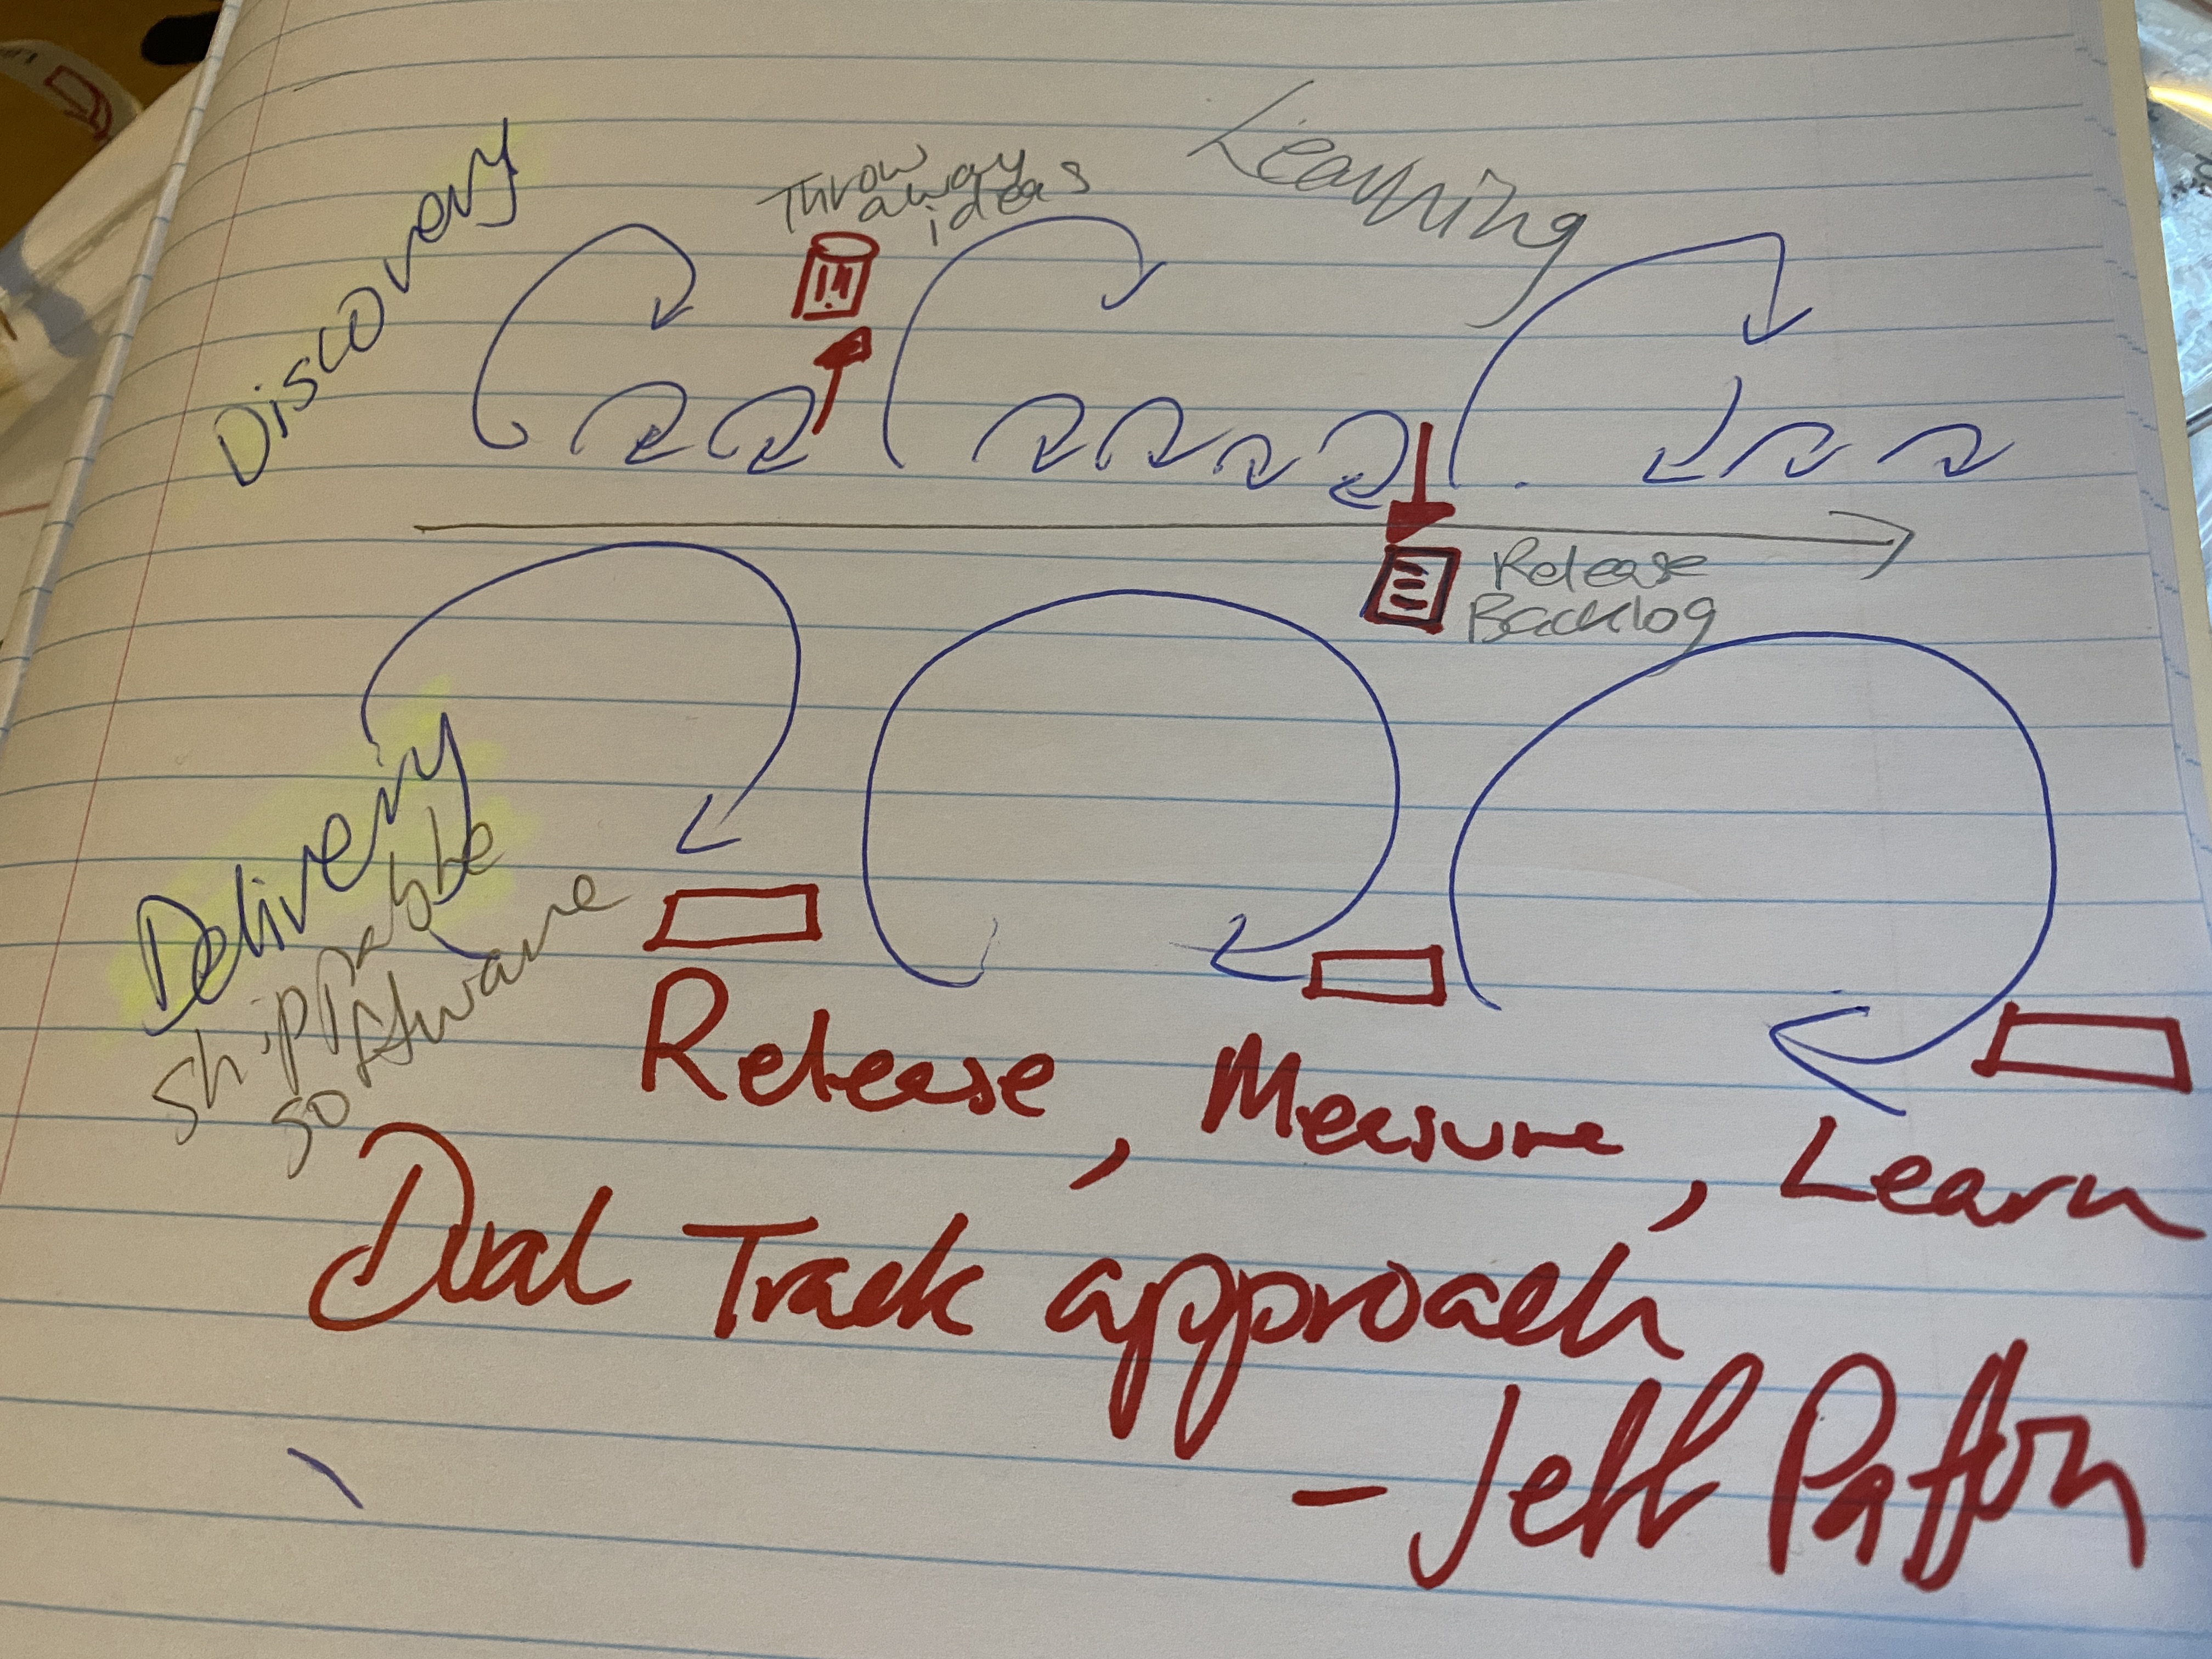 Learning
Throw
away
ideas
Discovery
Release
Backlog
Delivery
shippable
software
Release, Measure, Learn
Dual Track approach
- Jeff Patton